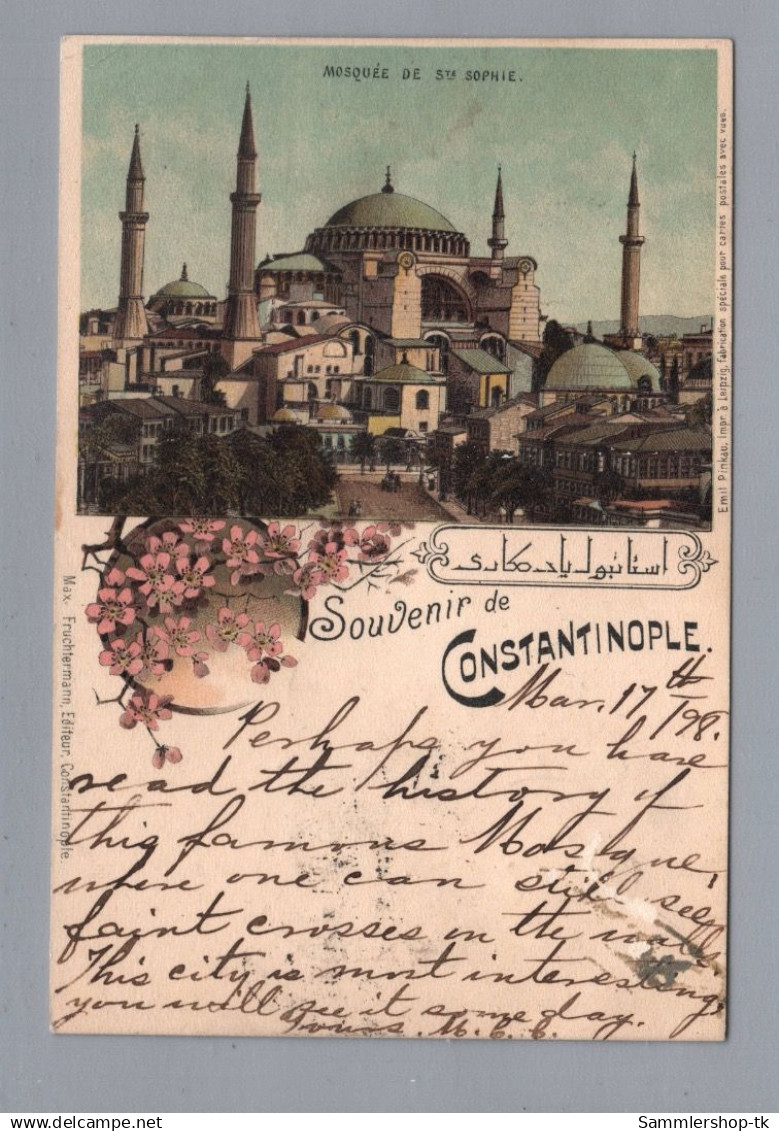 MOSQUÉE DE STA SOPHIE.
Emil Pinkau, Impr. à Leipzig, fabrication spéciale pour cartes postales avec vues.
استانبول يادكارى
Souvenir de
CONSTANTINOPLE.
Max. Fruchtermann, Editeur, Constantinople.
Mar. 17th/98.
Perhaps you have
read the history of
this famous Mosque,
where one can still see
faint crosses on the walls
This city is most interesting
you will see it some day.
Yours M. C. C.
Sammlershop-tk
Sammlershop-tk